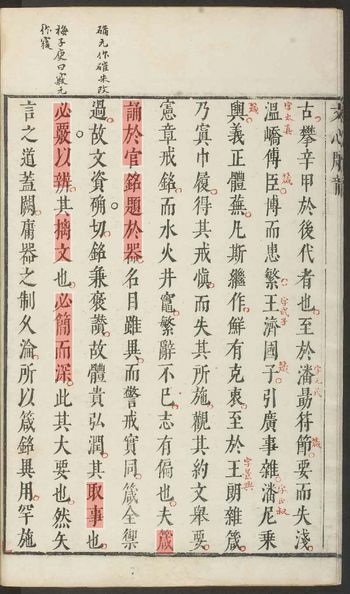 文心雕龍
古攀辛甲於後代者也至於潘勗符節要而失淺
字元茂
箴
溫嶠傅臣博而患繁王濟國子引廣事雜潘尼乘
字太真
箴
字武子
箴
字正叔
輿義正體蕪凡斯繼作鮮有克衷至於王朗雜箴
箴
字景興
乃寘巾履得其戒愼而失其所施觀其約文舉要
憲章戒銘而水火井竈繁辭不已志有偏也夫箴
誦於官銘題於器名目雖異而警戒實同箴全禦
過故文資确切銘兼褒讚故體貴弘潤其取事也
必覈以辨其摛文也必簡而深此其大要也然矢
言之道蓋闕庸器之制久淪所以箴銘異用罕施
确元作確朱改
梅子庾曰
元
作